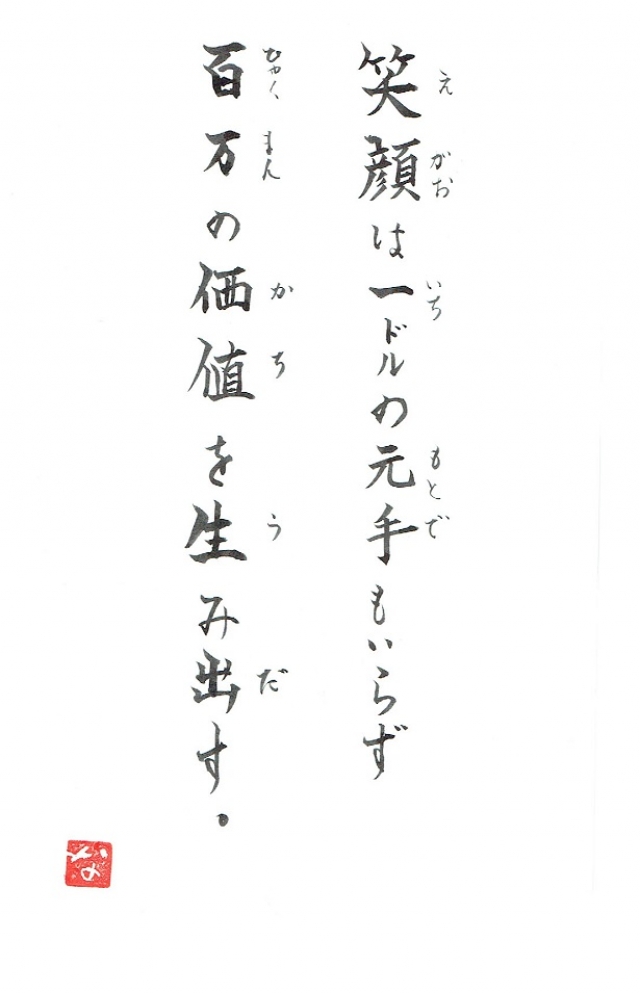 笑顔は一ドルの元手もいらず
えがおいちもとで
百万の価値を生み出す.
ひゃくまんかちうだ